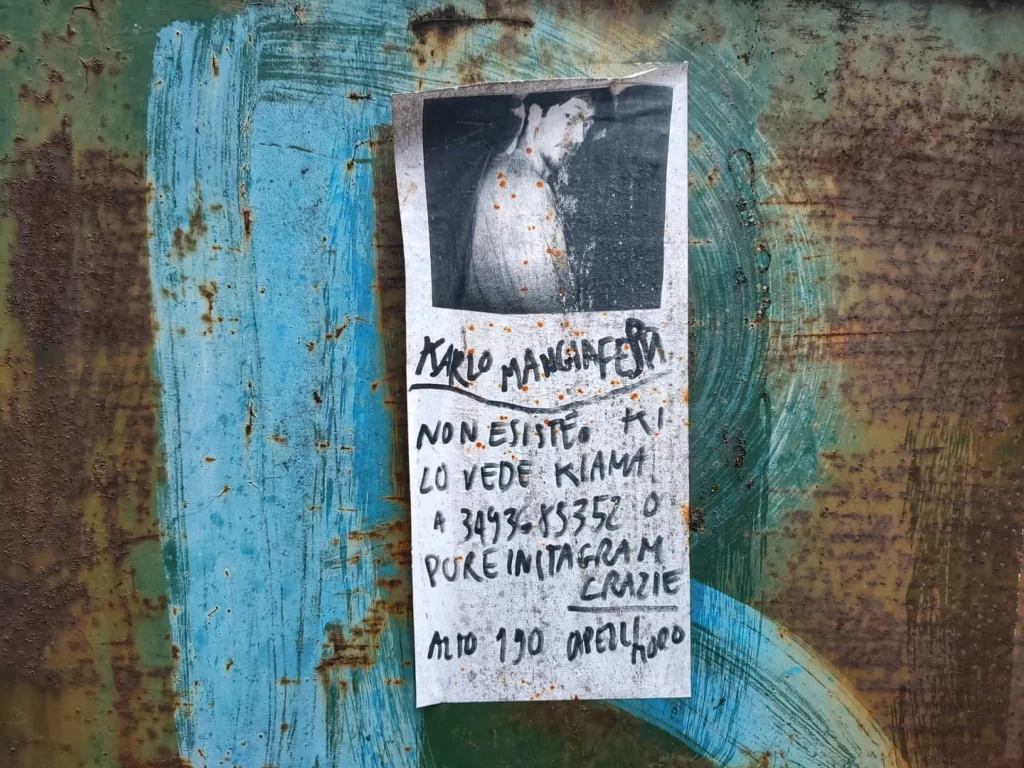 KARLO MANGIAFESTA
NON ESISTE. KI
LO VEDE KIAMA
A 3493.85352 O
PURE INSTAGRAM
GRAZIE
ALTO 190 CAPELLI MORO